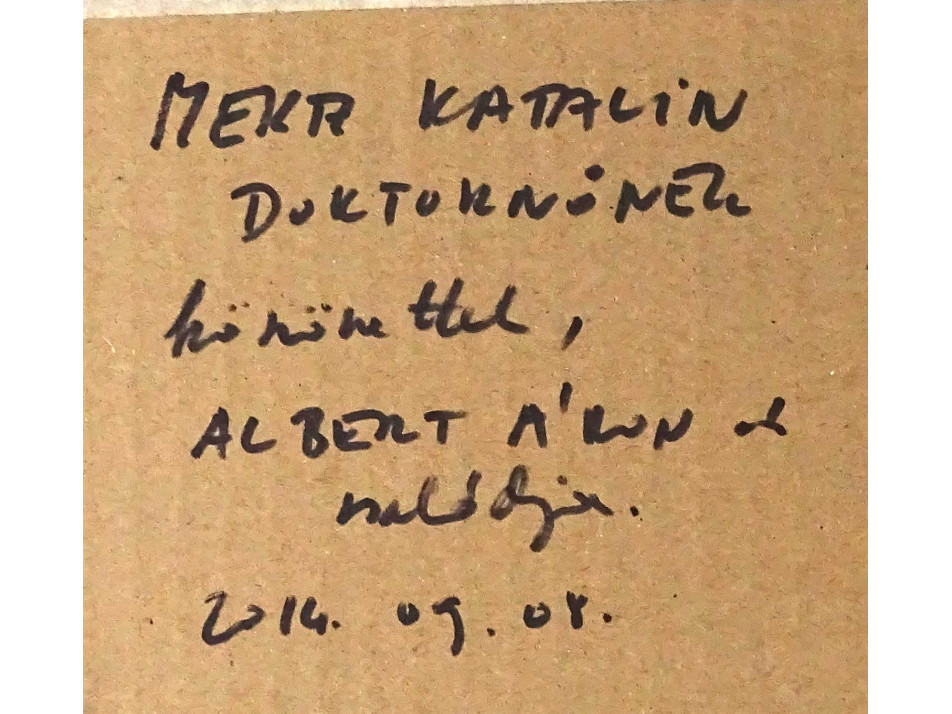 MERA KATALIN
DOKTORNŐNEK
köszönettel,
ALBERT ÁRON és
családja.
2014. 09. 08.